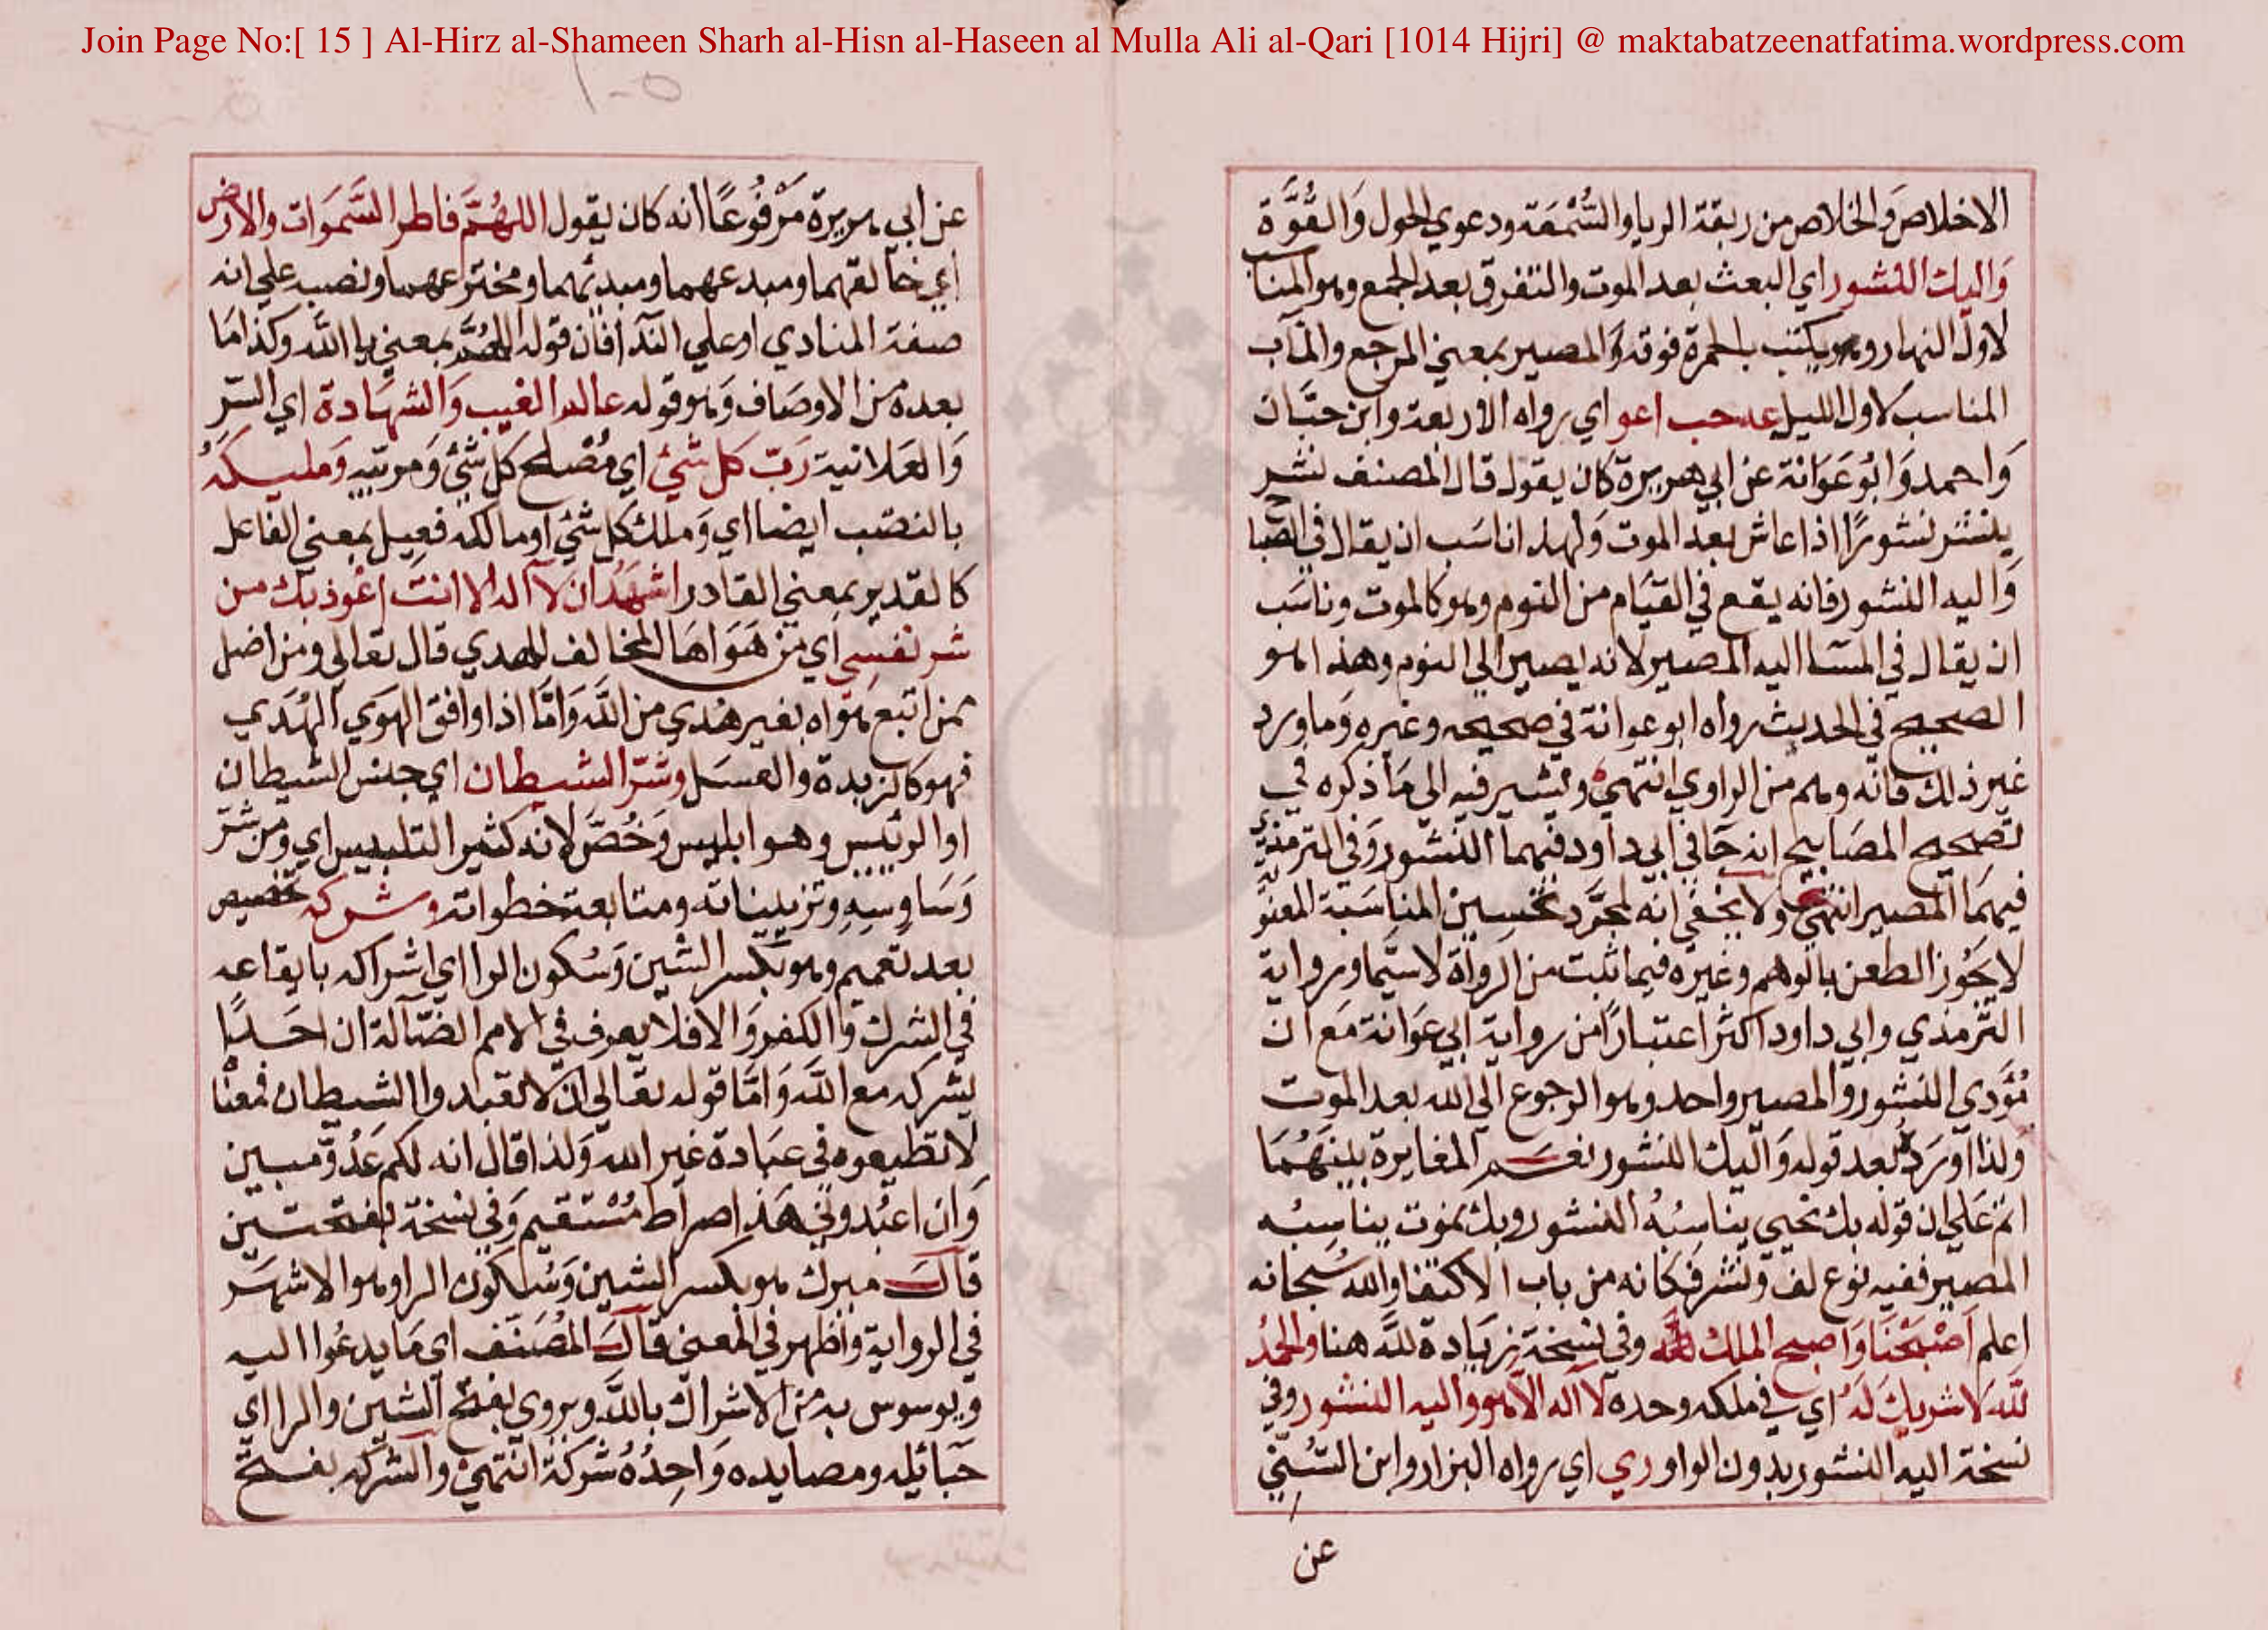 Join Page No:[ 15 ] Al-Hirz al-Shameen Sharh al-Hisn al-Haseen al Mulla Ali al-Qari [1014 Hijri] @ maktabatzeenatfatima.wordpress.com
الاخلاص وَالخلاص من ربقة الريا والسُّمْعَة ودعوي الحول وَالقُوَّة
وَاليك النشور اي البعث بعد الموت والتفرق بعد الجمع وهو المناسب
لاول النهار ويكتب بالحمرة فوقه وَالمصير بمعني المرجع والمآب
المناسب لاول الليل عه حب ا عو اي رواه الاربعة وابن حبَّان
وَاحمد وَابُو عَوَانة عن ابي هريرة كان يقول قال المصنف نشر
ينشر نشورًا اذا عاش بعد الموت وَلهذا ناسَب ان يقال في الصباح
وَاليه النشور فانه يقع في القيَام من النوم وهو كالموت وناسَب
ان يقال في المسَا اليه المصير لانه يصير الي النوم وهذا هو
الصحيح في الحديث رواه ابو عوانة في صحيحه وغيره وَما ورد
غير ذلك فانه وهم من الراوي انتهي ويشير فيه الي مَا ذكره في
تصحيح المصَابيح انه جَا في ابي داود فيهما النشور وَفي الترمذي
فيهمَا المصير انتهي ولا يخفي انه لمجرَّد تحسين المناسَبة المعنوية
لا يَجُوز الطعن بالوهم وغيره فيما ثبت من الرواة لا سيَّما ورواية
الترمذي وابي داود اكثر اعتبارًا من رواية ابي عوَانة مَع ان
مُؤَدي النشور والمصير واحد وهو الرجوع الي الله بعد الموت
وَلذا اورَدهُ بعد قوله وَاليك النشور نعم المغايرة بينهُمَا
اتم عَلي ان قوله بك نحيي يناسبُهُ النشور وبك نموت يناسِبُه
المصير ففيه نوع لف وَنشر فكانه من باب الاكتفا والله سُبحانه
اعلم اصْبَحْنَا وَاصبح الملك لله وفي نسخة زيَادة لله هنا والحمدُ
لله لا شريك لَهُ اي في ملكه وحده لا اله الا هو واليه النشور وفي
نسخة اليه النشور بدون الواو ر ي اي رواه البزار وابن السُّني
عن
عن ابي هريرة مَرْفُوعًا انه كان يقول اللهُمَّ فاطر السَّموَات والارض
اي خَالقهما ومبدعهما ومبدئهما ومخترعهما ونصبه علي انه
صفة المنادي او علي الندا فان قوله اللهُمَّ بمعني يا الله وكذا مَا
بعده من الاوصَاف وَهو قوله عالم الغيب وَالشهَادة اي السّر
وَالعَلانية رَبّ كل شئ اي مُصْلح كل شَئ وَمربيه وَمليكَهُ
بالنصْب ايضا اي وَملك كل شئ او مالكه فعِيل بمعني الفاعل
كالقدير بمعني القادر اشهَدُ ان لا اله الا انت اعُوذ بك من
شر نفسِي اي من هَوَاهَا المخالف للهدي قال تعالي ومن اضل
ممن اتبع هَوَاه بغير هدي من الله وَامَّا اذا وافق الهوَي الهُدَي
فهو كالزبدة والعسَل وشرّ الشيطان اي جنس الشيطان
او الرئيس وهو ابليس وَخُصَّ لانه كثير التلبيس اي وَمن شرّ
وَسَاوِسِهِ وتزييناته ومتابعة خطواته وشركه تخصيص
بعد تعميم وهو بكسر الشين وَسُكون الرا اي اشراكه بايقاعه
في الشرك وَالكفر وَالا فلا يعرف في الامم الضّآلة ان احَدًا
يشركه مع الله وَامَّا قوله تعَالي ان لا تعبدوا الشيطان فمعنَا
لا تطيعوه في عبَادة غير الله وَلذا قال انه لكم عَدُوّ مبين
وَان اعبُدوني هَذا صراط مُسْتقيم وَفي نسخة بفتحتين
قالَ ميرك هو بكسر الشين وَسُكون الرا وهو الاشهَر
في الرواية واظهر في المعني قالَ المُصَنّف اي مَا يدعُوا اليه
ويوسوس به من الاشراك بالله ويروي بفتح الشين والرا اي
حَبائله ومصايده وَاحِدُهُ شَرَكَة انتهي والشركه بفتح